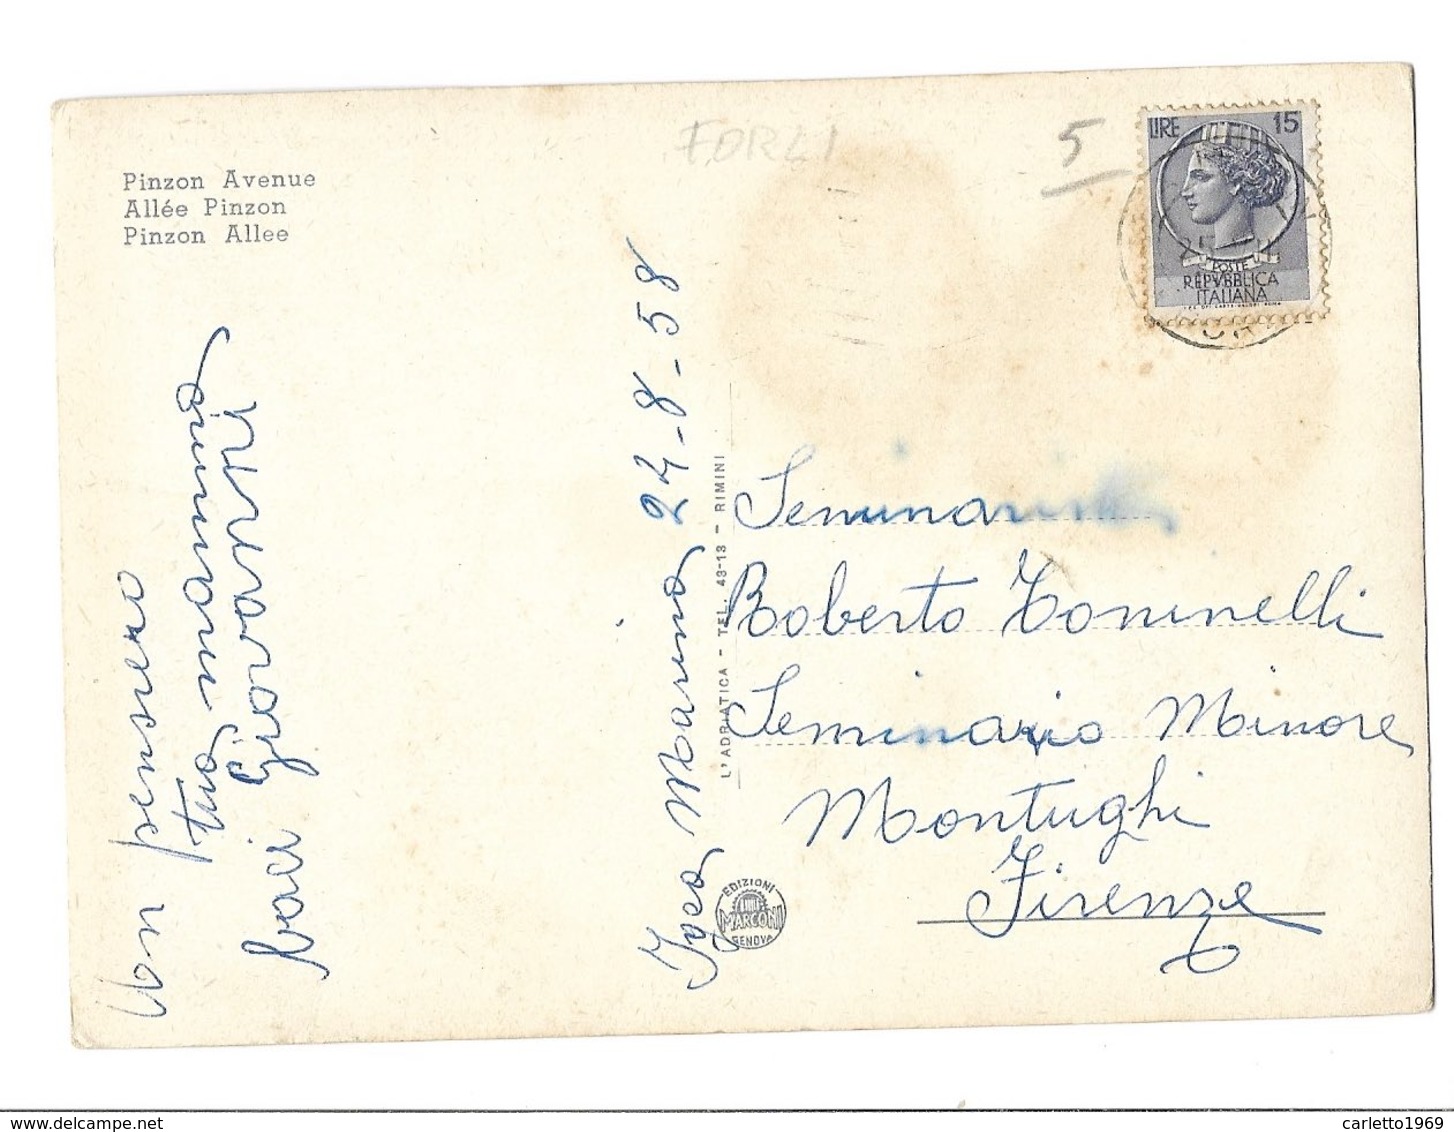 Pinzon Avenue
Allée Pinzon
Pinzon Allee
FORLI
5
LIRE 15
POSTE
REPVBBLICA
ITALIANA
Un pensiero
tuo
baci Giovanni
Igea Marina 24-8-58
L'ADRIATICA - TEL. 43-13 - RIMINI
EDIZIONI
MARCONI
GENOVA
Seminarista
Roberto Toninelli
Seminario Minore
Montughi
Firenze
carletto1969